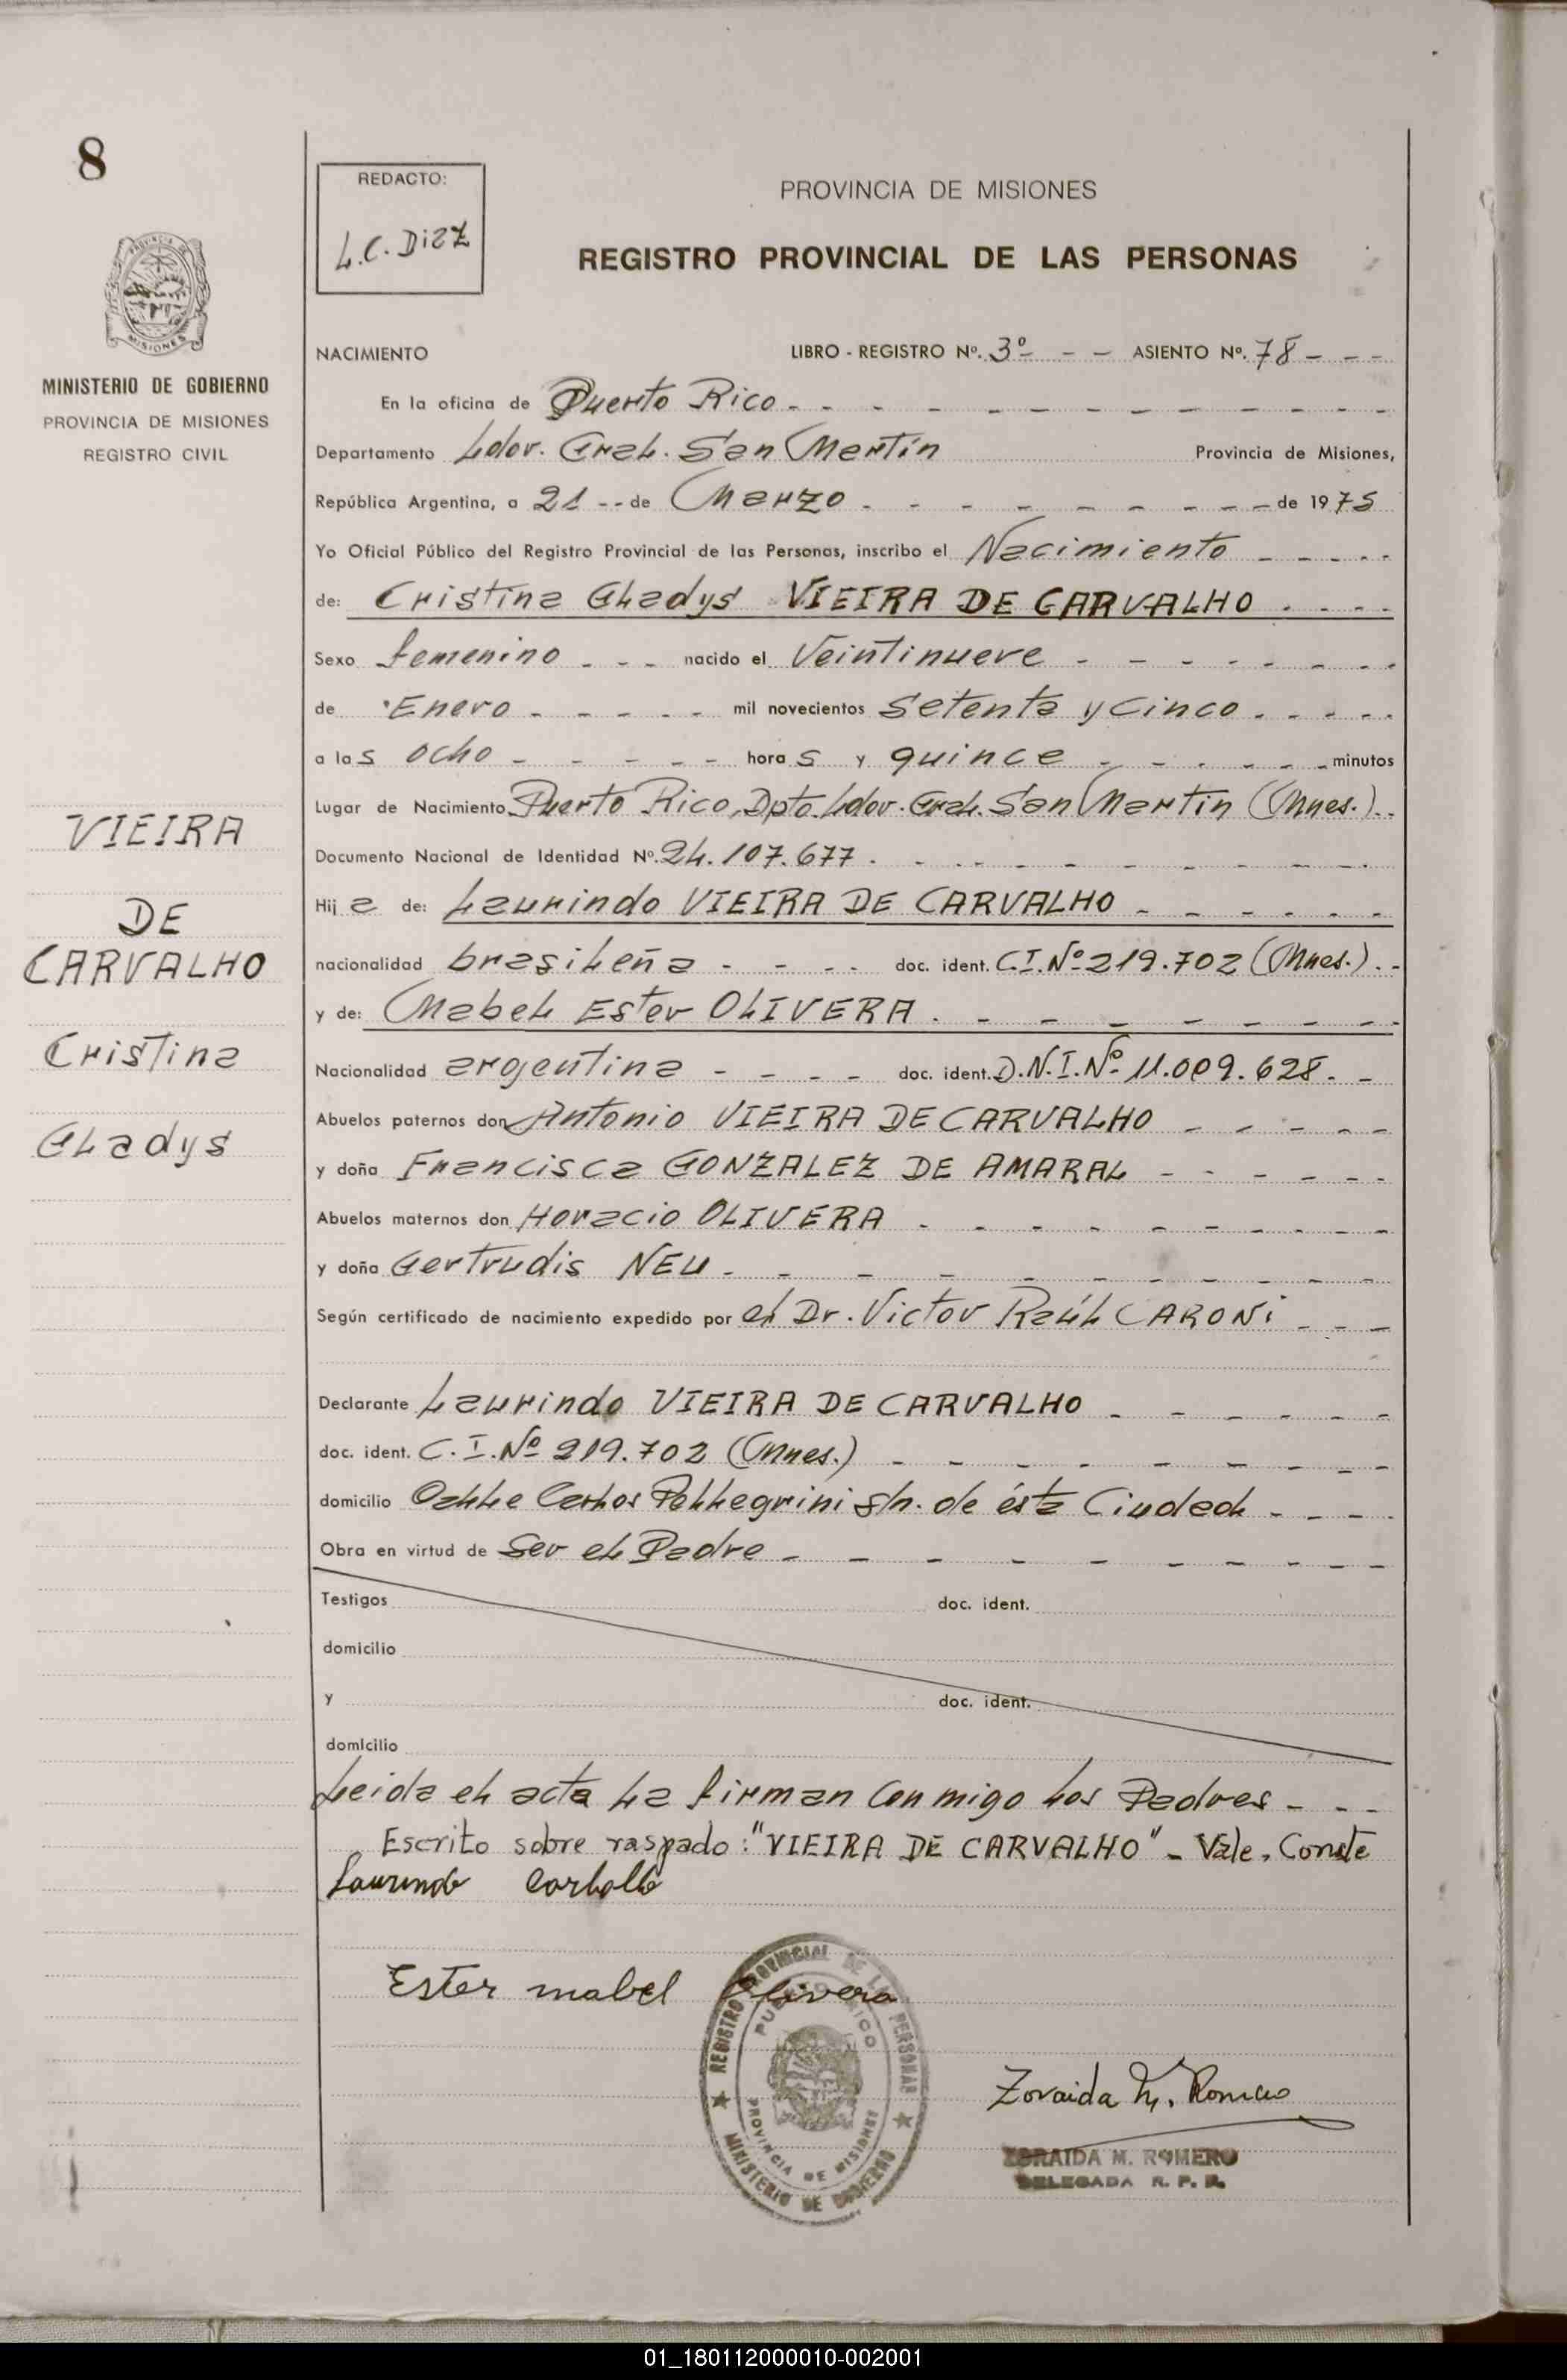 8
REDACTO:
L.C. Diaz
PROVINCIA DE MISIONES
REGISTRO PROVINCIAL DE LAS PERSONAS
MISIONES
MINISTERIO DE GOBIERNO
PROVINCIA DE MISIONES
REGISTRO CIVIL
NACIMIENTO LIBRO - REGISTRO Nº. 3º - - - ASIENTO Nº. 78 - - -
En la oficina de Puerto Rico
Departamento Ldor. Gral. San Martín Provincia de Misiones,
República Argentina, a 21 -- de Marzo de 1975
Yo Oficial Público del Registro Provincial de las Personas, inscribo el Nacimiento
de: Cristina Gladys VIEIRA DE CARVALHO
Sexo femenino nacido el Veintinueve
de Enero mil novecientos Setenta y Cinco
a las ocho horas y quince minutos
Lugar de Nacimiento Puerto Rico, Dpto. Ldor. Gral. San Martín (Mnes.)
Documento Nacional de Identidad Nº. 24.107.677
Hija de: Laurindo VIEIRA DE CARVALHO
nacionalidad brasileña doc. ident. C.I. Nº 219.702 (Mnes.)
y de: Mabel Ester OLIVERA
Nacionalidad argentina doc. ident. D.N.I. Nº 11.009.628
Abuelos paternos don Antonio VIEIRA DE CARVALHO
y doña Francisca GONZALEZ DE AMARAL
Abuelos maternos don Horacio OLIVERA
y doña Gertrudis NEU
Según certificado de nacimiento expedido por el Dr. Victor Raúl CARONi
Declarante Laurindo VIEIRA DE CARVALHO
doc. ident. C.I. Nº 219.702 (Mnes.)
domicilio Calle Carlos Pellegrini s/n. de ésta Ciudad
Obra en virtud de Ser el Padre
Testigos doc. ident.
domicilio
y doc. ident.
domicilio
Leida el acta la firman Conmigo los Padres
Escrito sobre raspado: "VIEIRA DE CARVALHO" - Vale. Conste
Laurindo Carballo
Ester mabel Olivera
REGISTRO PROVINCIAL DE LAS PERSONAS
PUERTO RICO
PROVINCIA DE MISIONES
MINISTERIO DE GOBIERNO
Zoraida M. Romero
ZORAIDA M. ROMERO
DELEGADA R. P. P.
VIEIRA
DE
CARVALHO
Cristina
Gladys
01_180112000010-002001